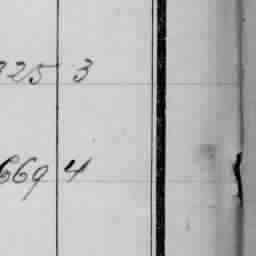 325 3
669 4